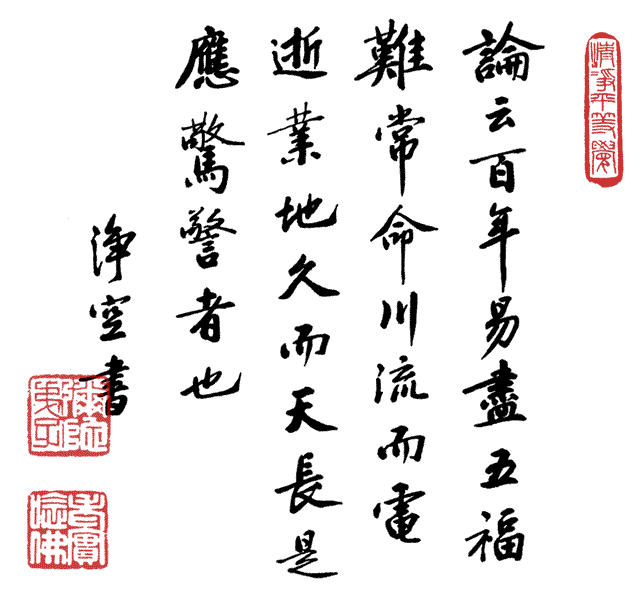 清淨平等覺
論云百年易盡五福
難常命川流而電
逝業地久而天長是
應驚警者也
淨空書
彌陀弟子
老實念佛